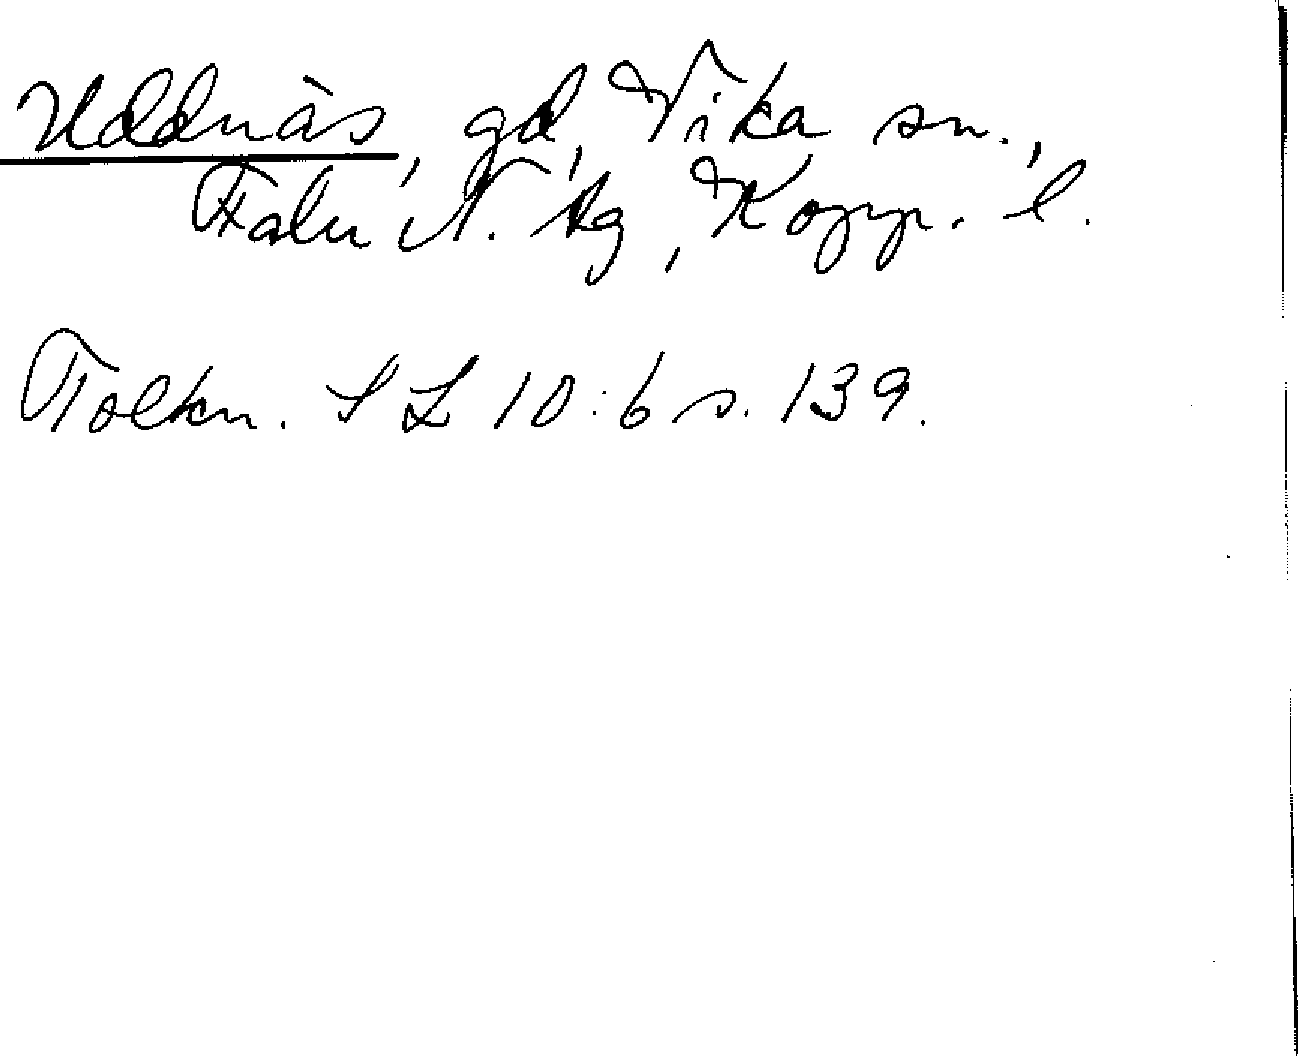 Uddnäs, gd, Vika sn.,
Falu N. tg, Kopp. l.
Tolkn. SL 10:6 s. 139.